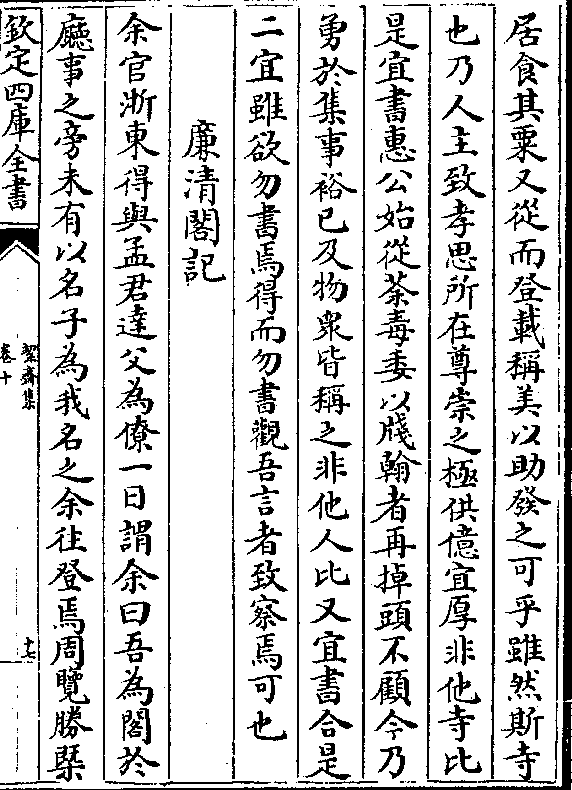 居食其粟又從而登載稱美以助發之可乎雖然斯寺
也乃人主致孝思所在尊崇之極供億宜厚非他寺比
是宜書惠公始從荼毒委以牋翰者再掉頭不顧今乃
勇於集事裕已及物衆皆稱之非他人比又宜書合是
二宜雖欲勿書焉得而勿書觀吾言者致察焉可也
廉清閣記
余官浙東得與孟君達父為僚一日謂余曰吾為閣於
廳事之旁未有以名子為我名之余往登焉周覽勝槩
欽定四庫全書
絜齋集
卷十
十七